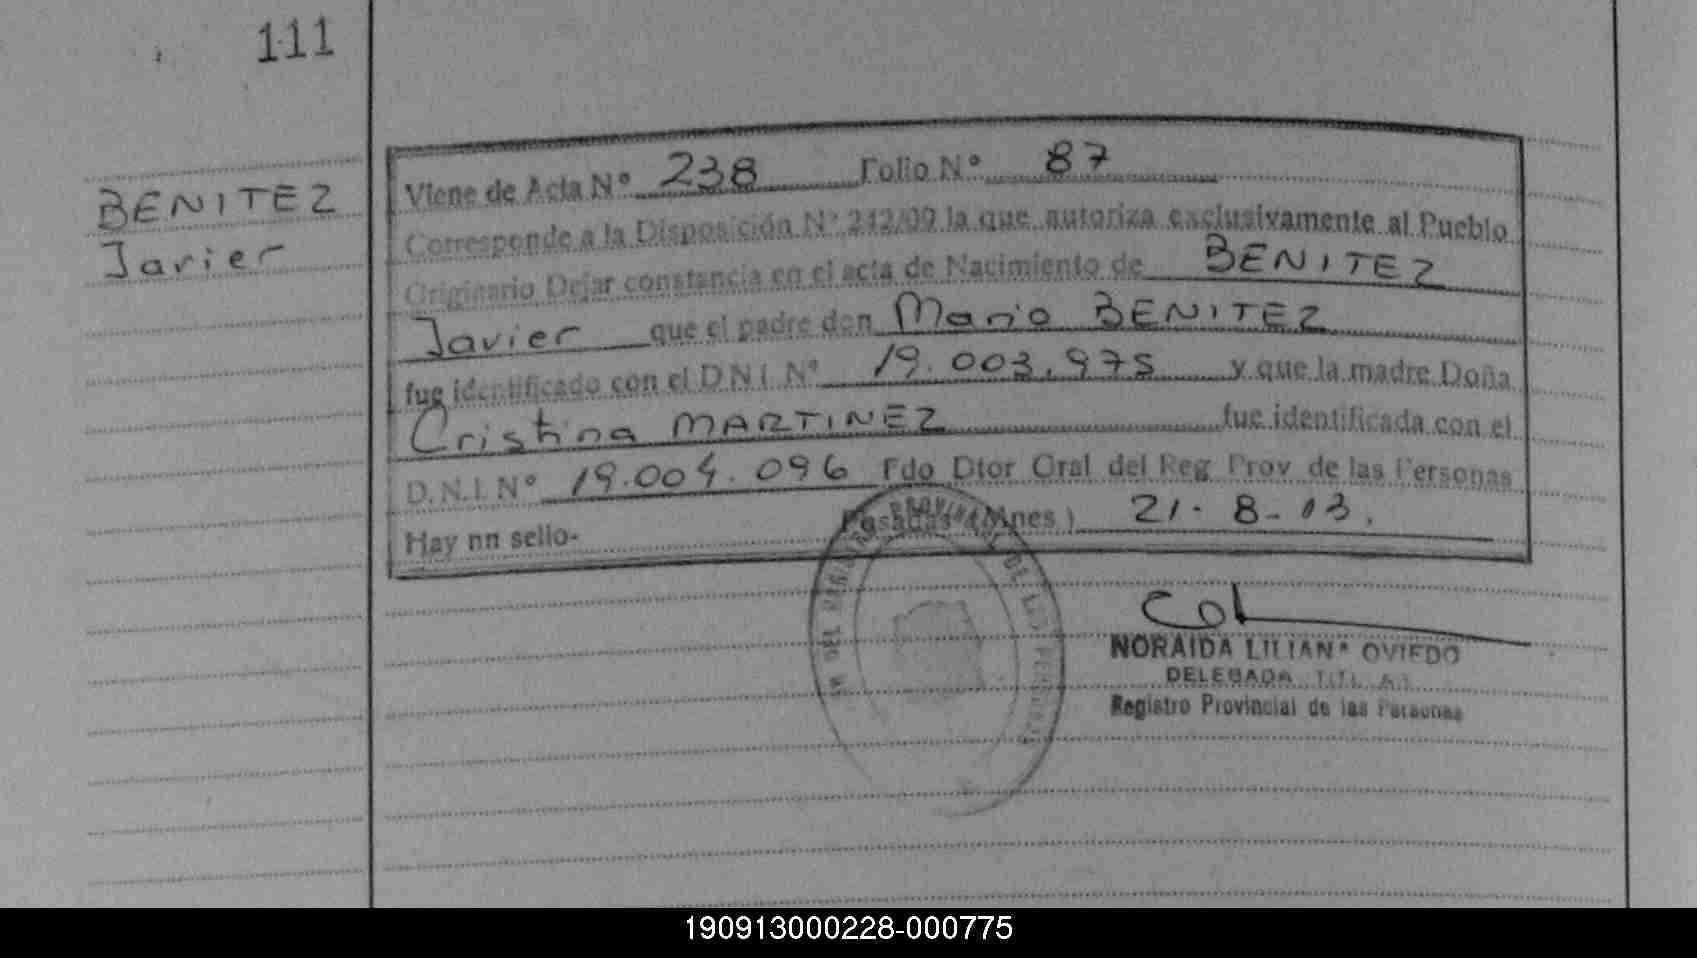 111
BENITEZ
Javier
Viene de Acta Nº 238 Folio Nº 87
Corresponde a la Disposición Nº 242/09 la que autoriza exclusivamente al Pueblo
Originario Dejar constancia en el acta de Nacimiento de BENITEZ
Javier que el padre don Mario BENITEZ
fue identificado con el D N I Nº 19.003.975 y que la madre Doña
Cristina MARTINEZ fue identificada con el
D.N.I. Nº 19.004.096 Fdo Dtor Gral del Reg Prov de las Personas
Hay nn sello- Posadas (Mnes) 21-8-13.
PROVINCIAL DE LAS PERSONAS
NORAIDA LILIANA OVIEDO
DELEGADA
Registro Provincial de las Personas
190913000228-000775